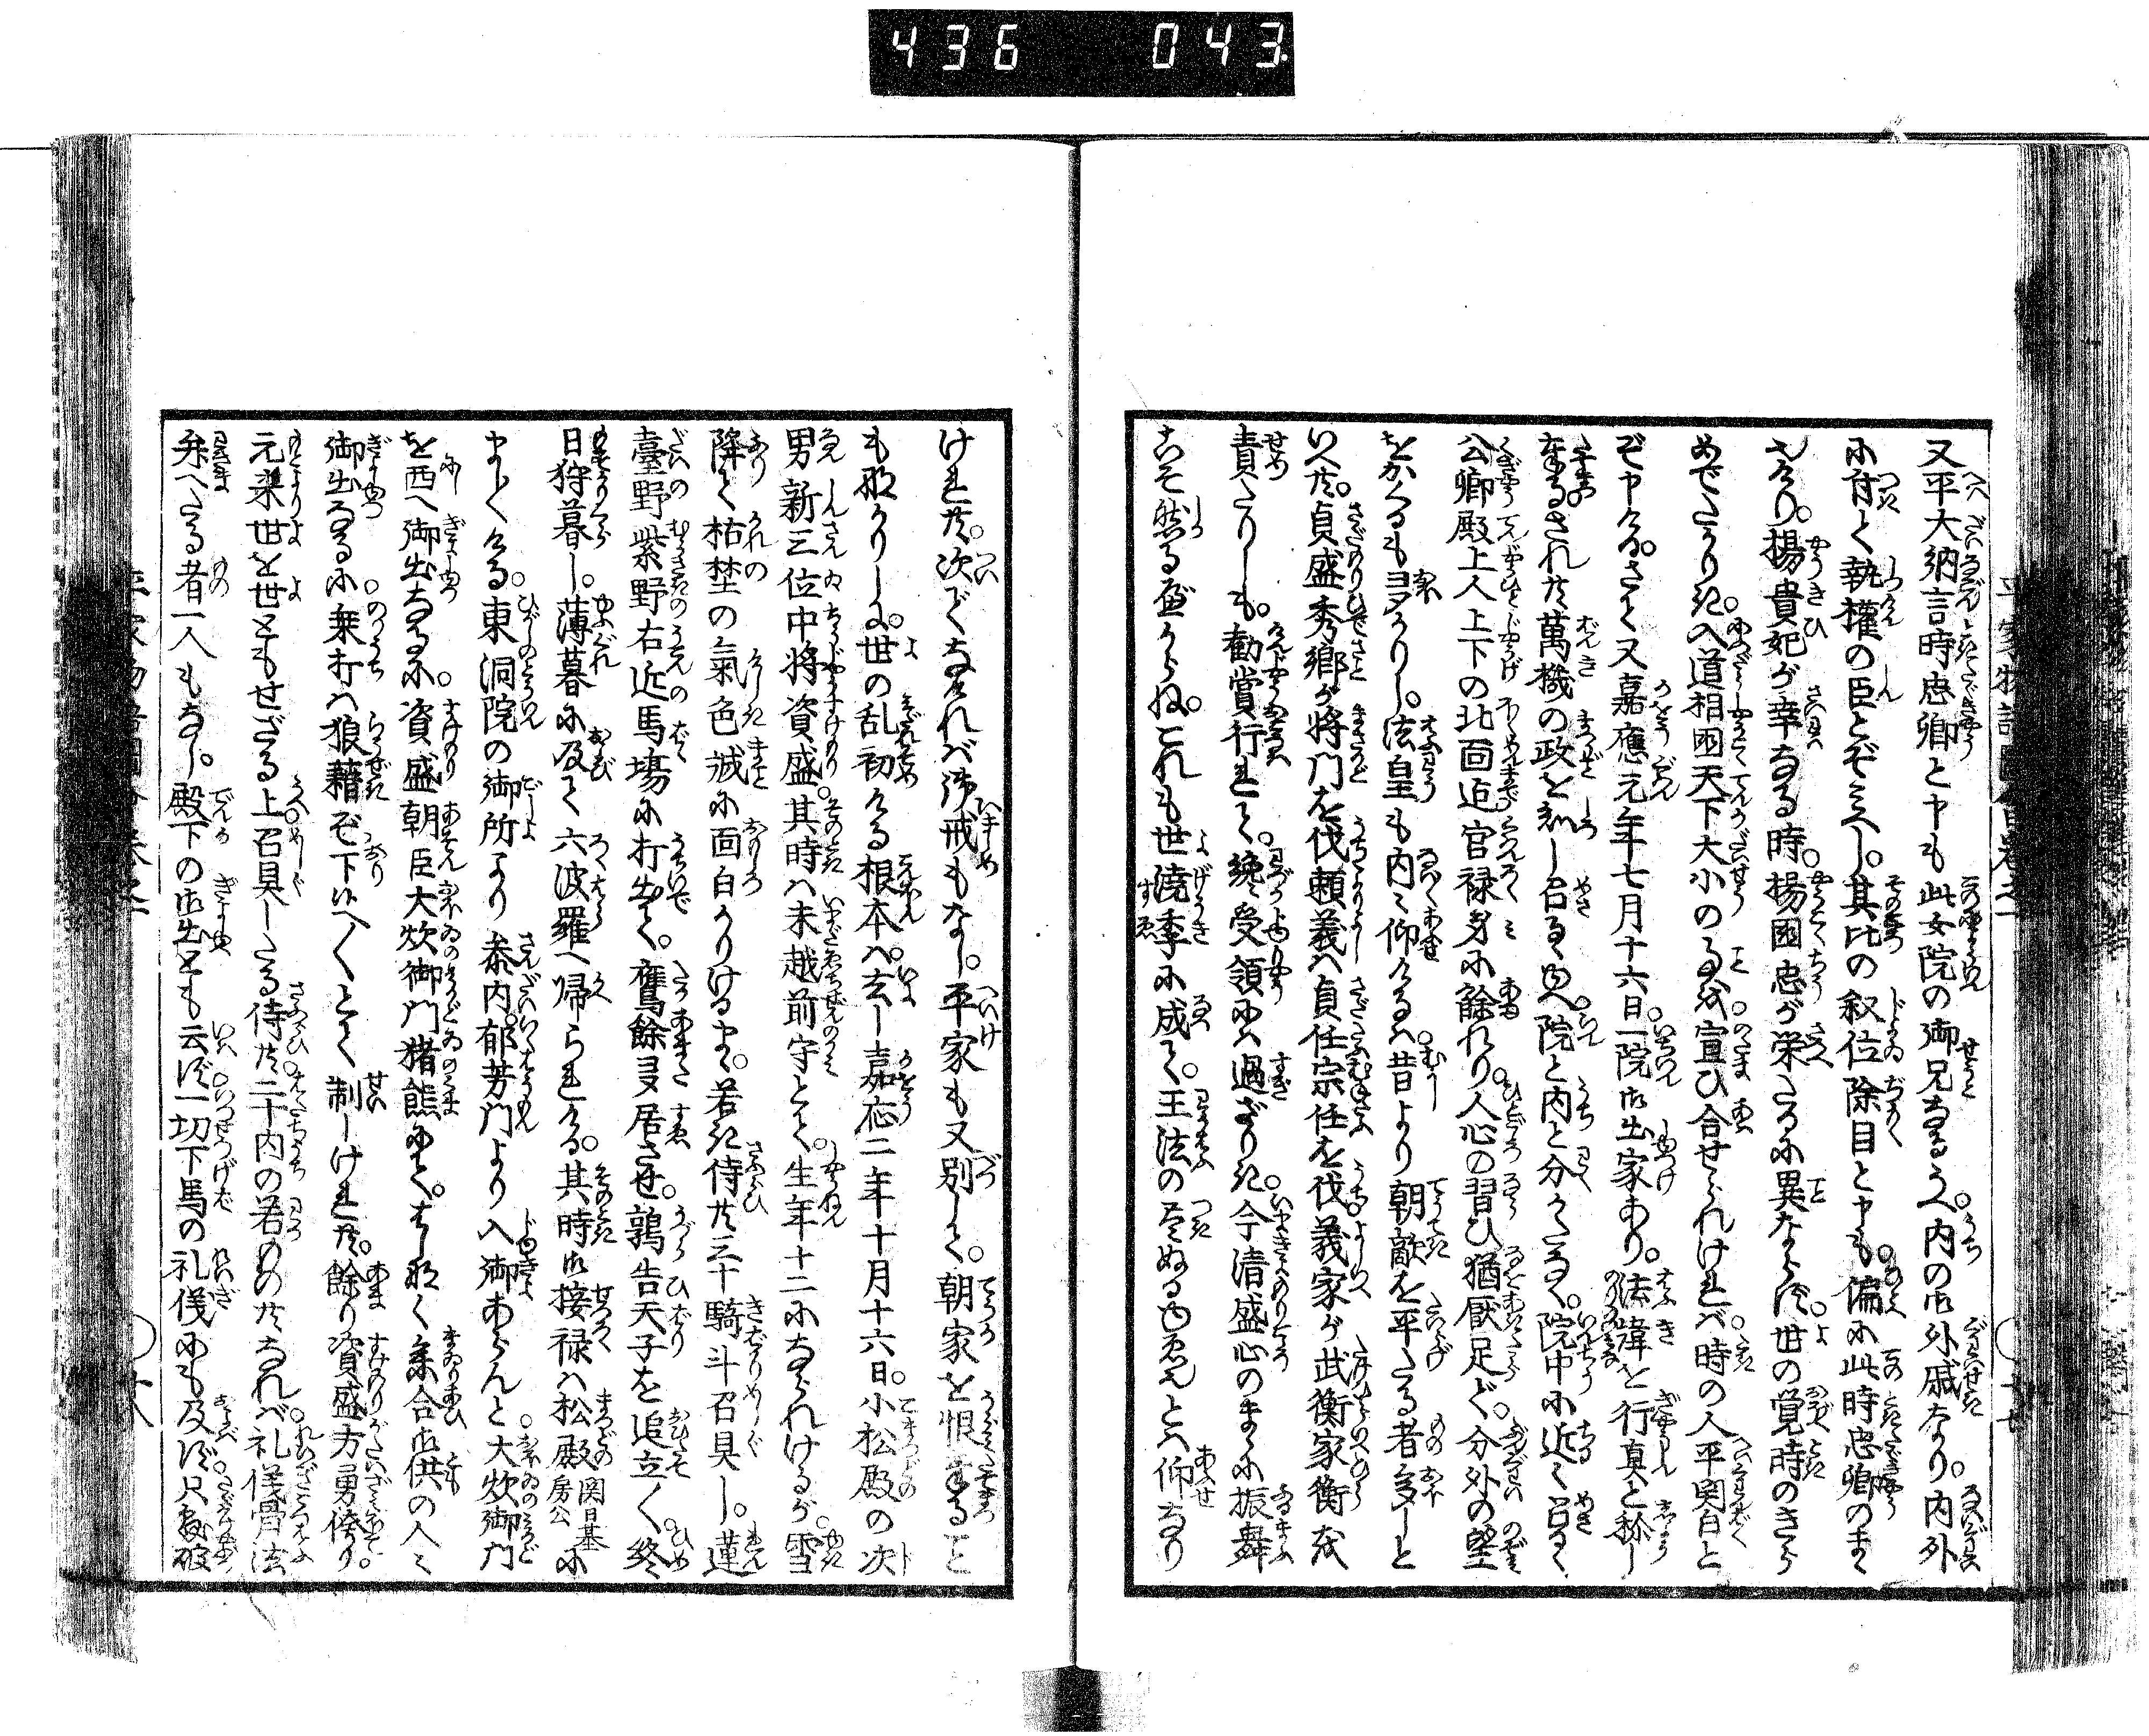 436 043
又平大納言時忠卿と申も此女院の御兄なるうへ。内の御外戚なり。内外
に付て執權の臣とぞみへし。其比の叙位除目と申も。偏に此時忠卿のまゝ
也けり。楊貴妃が幸なる時。楊國忠が栄たるに異ならず。世の覚時のきら
めでたかりき。入道相國天下大小の事を宣ひ合せられければ。時の人平関白と
ぞ申ける。さて又嘉應元年七月十六日。一院御出家あり。法諱を行真と称し
奉る。されども萬機の政を知し召るゝ由へ。院と内と分くたなく。院中に近く召るゝ
公卿殿上人上下の北面迄官禄身に餘れり。人心の習ひ猶厭足ど。分外の望
をかくるも多かりし。法皇も内々仰けるハ。昔より朝敵を平たる者多しと
いへども。貞盛秀郷が将門を伐。頼義ハ貞任宗任を伐。義家が武衡家衡を
責たりしも。勧賞行れて。纔に受領にハ過ざりき。今清盛心のまゝに振舞
こそ然る可からね。これも世澆季に成て。王法の尽ぬる由ゑ也とハ仰なり
けれども。次でなければ御戒もなし。平家も又別して。朝家を恨奉ること
も那かりしに。世の乱初ける根本ハ。去し嘉応二年十月十六日。小松殿の次
男新三位中将資盛。其時ハ未越前守とて。生年十三になられけるが。雪
降て枯埜の氣色誠に面白かりけるまゝ。若き侍共三十騎斗召具し。蓮
臺野紫野右近馬場に打出て。鷹餘多居させ。鶉告天子を追立〳〵終
日狩暮し。薄暮に及て六波羅へ帰られける。其時御接禄ハ松殿関白基房公に
ましく〳〵ける。東洞院の御所より参内。郁芳門より入御あらんと。大炊御門
を西へ御出なるに。資盛朝臣大炊御門猪熊にて。はしたなく参合。御供の人々
御出なるに乗打ハ狼藉ぞ下候へ〳〵とて制しけれども。餘り資盛方勇傍り
元来世を世ともせざる上召具したる侍共二十内の若ものどもなれば。礼儀骨法
弁へたる者一人もなし。殿下の御出とも云ず。一切下馬の礼儀にも及ず。只驅破